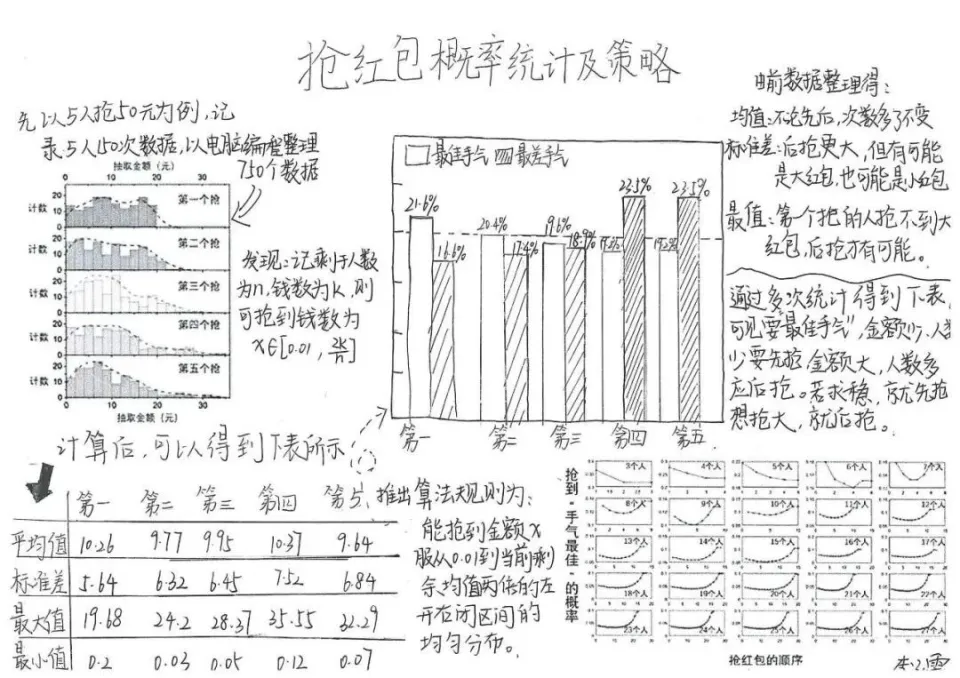 抢红包概率统计及策略
先以5人抢50元为例,记
录5人150次数据,以电脑编程整理
750个数据
抽取金额(元)
0 10 20 30
计数
第一个抢
计数
第二个抢
计数
第三个抢
计数
第四个抢
计数
第五个抢
0 10 20 30
抽取金额(元)
发现:记剩于人数
为n,钱数为k,则
可抢到钱数为
x∈[0.01,
最佳手气 最差手气
21.6% 16.6% 20.4% 17.4% 19.6% 18.9% 23.5% 23.5%
第一 第二 第三 第四 第五
由前数据整理得:
均值:不论先后,次数多了不变
标准差:后抢更大,但有可能
是大红包,也可能是小红包
最值:第一个抢的人抢不到大
红包,后抢才有可能。
通过多次统计得到下表,
可见要"最佳手气",金额少,人
少要先抢,金额大,人数多
应后抢。若求稳,就先抢
想抢大,就后抢。
计算后,可以得到下表所示
第一 第二 第三 第四 第五
平均值 10.26 9.77 9.95 10.37 9.64
标准差 5.64 6.32 6.45 7.52 6.84
最大值 19.68 24.2 28.37 35.55 32.29
最小值 0.2 0.03 0.05 0.12 0.07
推出算法规则为:
能抢到金额x
服从0.01到当前剩
余均值两倍的左
开右闭区间的
均匀分布。
抢到"手气最佳"的概率
3个人 4个人 5个人 6个人
8个人 9个人 10个人 11个人 12个人
13个人 14个人 15个人 16个人
18个人 19个人 20个人 21个人 22个人
23个人 24个人 25个人 26个人 27个人
抢红包的顺序